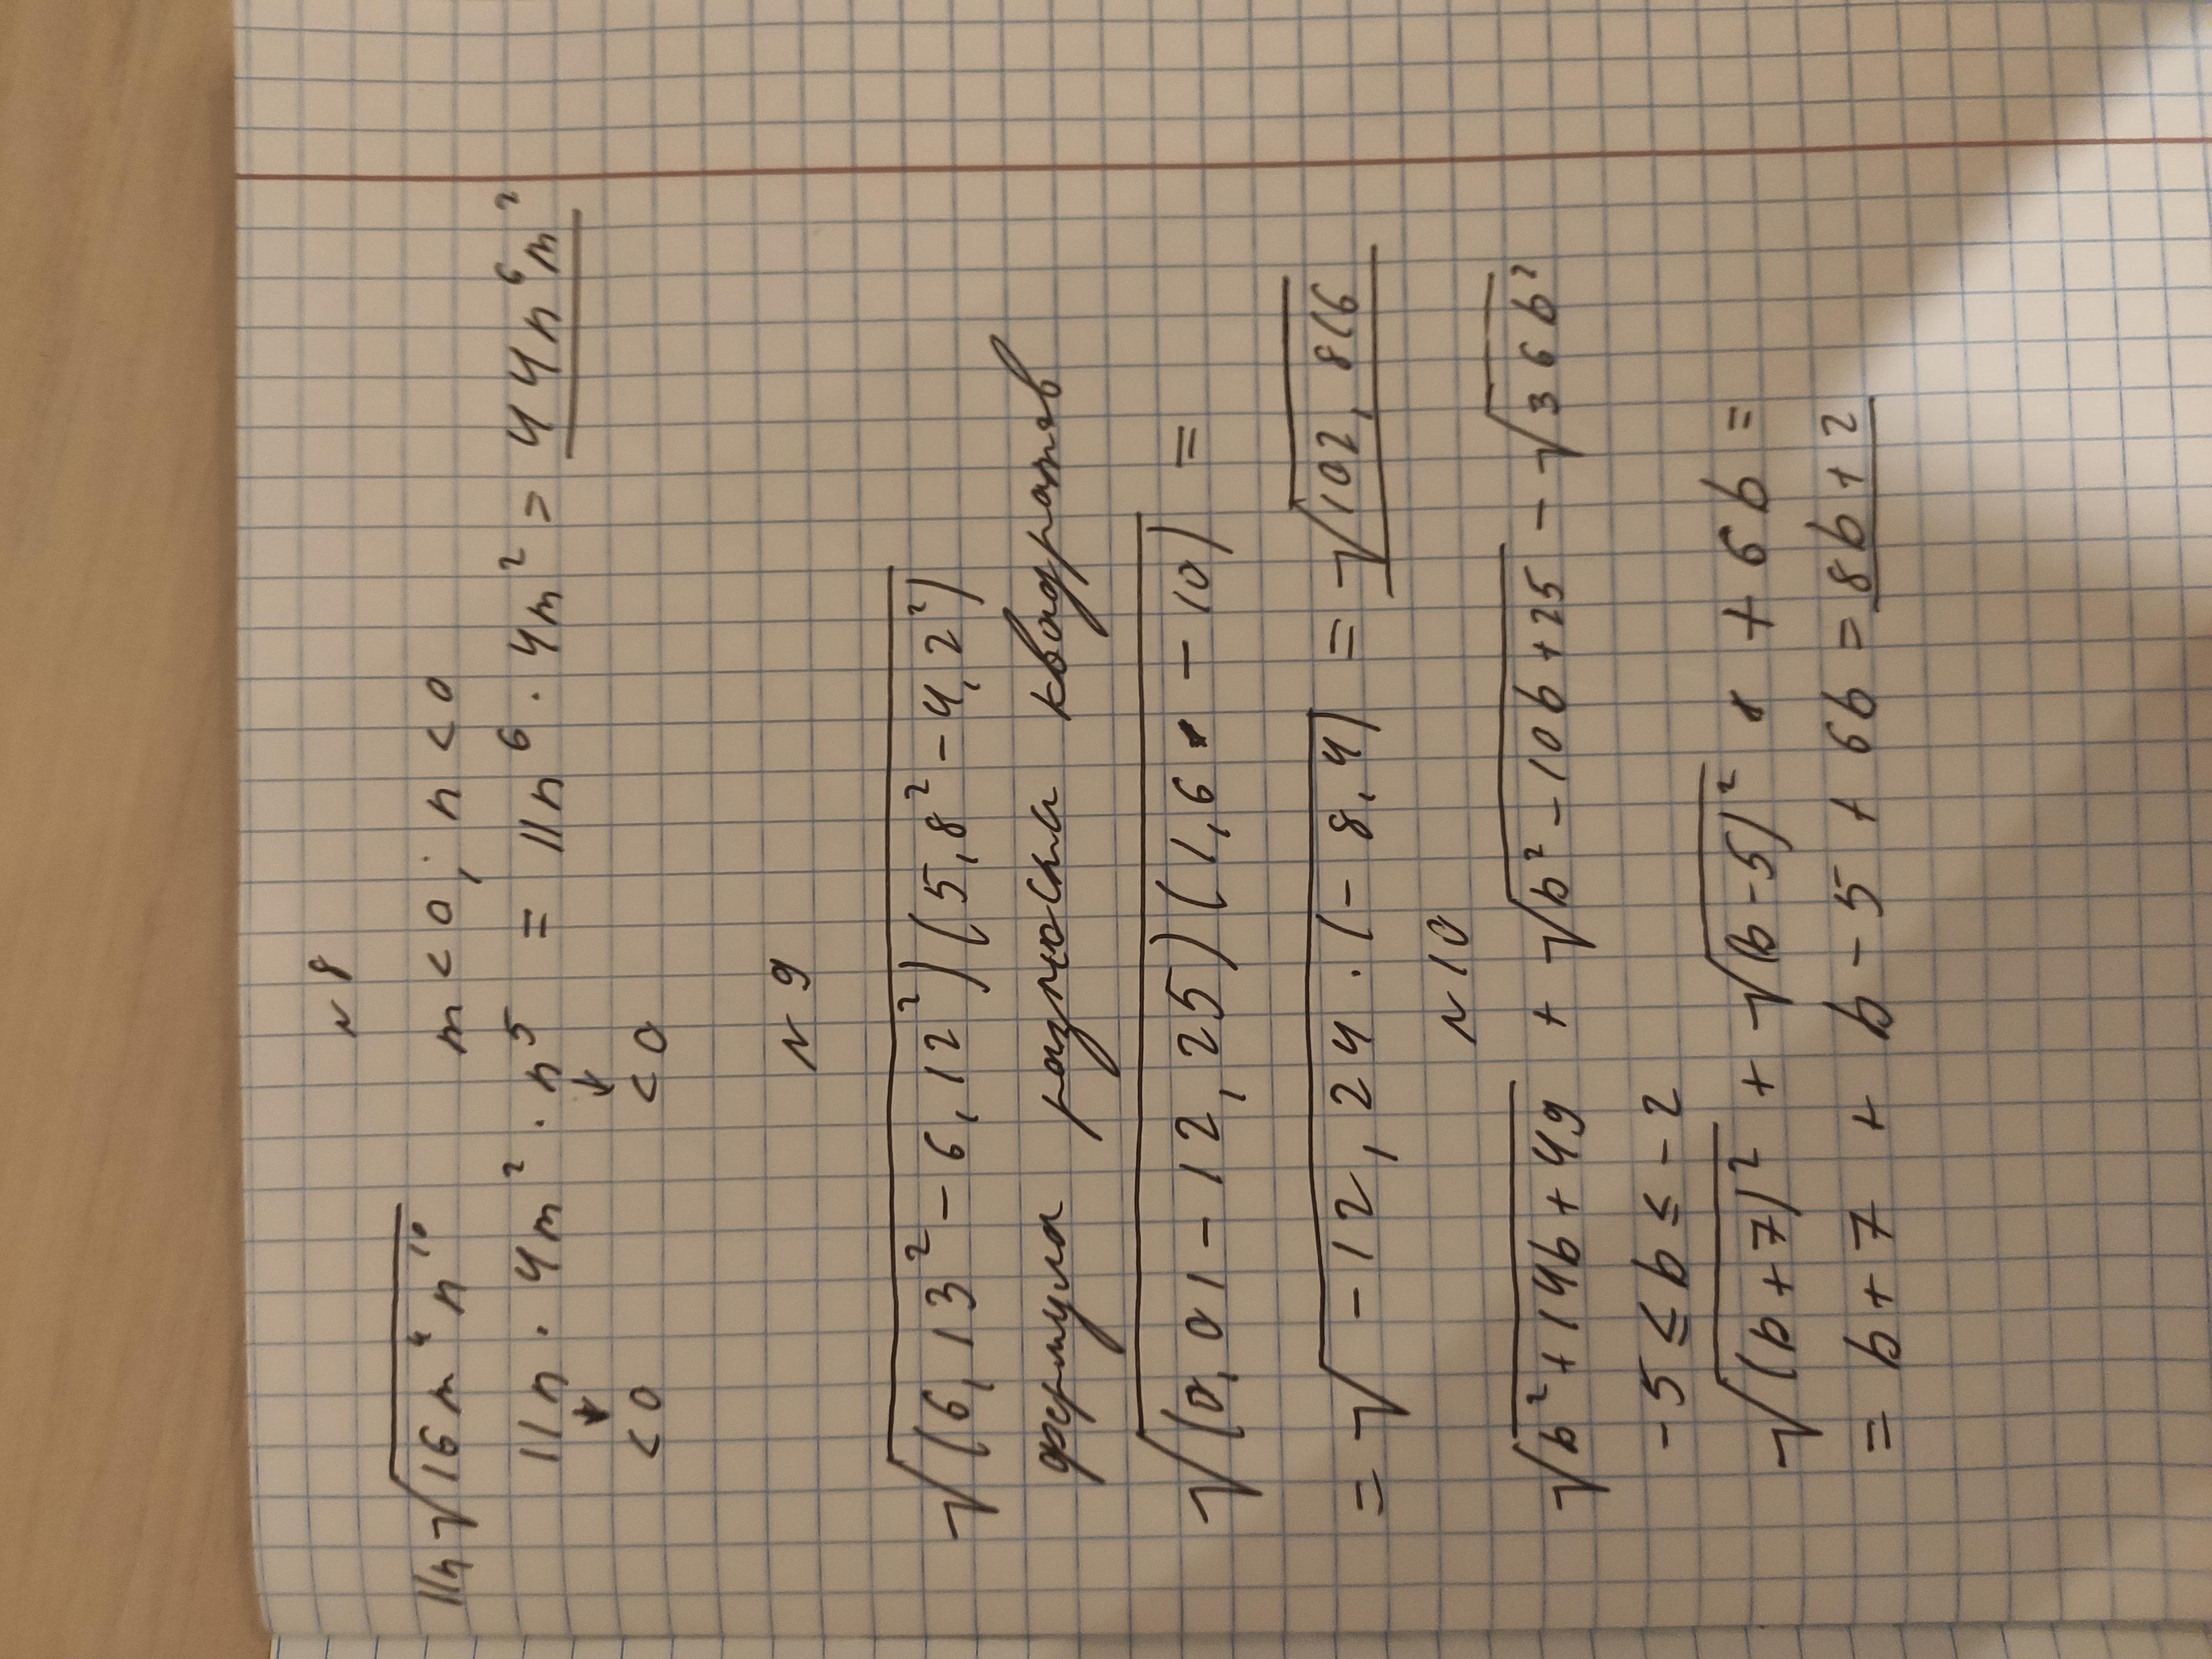 N 8
11n √16m⁴n¹⁰ m<0; n<0
11n · 4m² · n⁵ = 11n⁶ · 4m² = 44n⁶m²
↓ ↓
<0 <0
N 9
√(6,13² - 6,12²)(5,8² - 4,2²)
формула разности квадратов
√(0,01 - 12,25)(1,6 - 10) =
= √-12,24 · (-8,4) = √102,816
N 10
√b² + 14b + 49 + √b² - 10b + 25 - √36b²
-5 ≤ b ≤ -2
√(b+7)² + √(b-5)² + 6b =
= b + 7 + b - 5 + 6b = 8b + 2